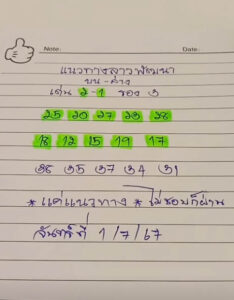 Note:
Date:
แนวทางลาวพัฒนา
บน-ล่าง
เด่น 2-1 รอง 3
25 20 27 23 28
18 12 15 19 17
38 35 37 34 31
* แค่แนวทาง * ไม่ชอบก็ผ่าน
จันทร์ที่ 1/7/67